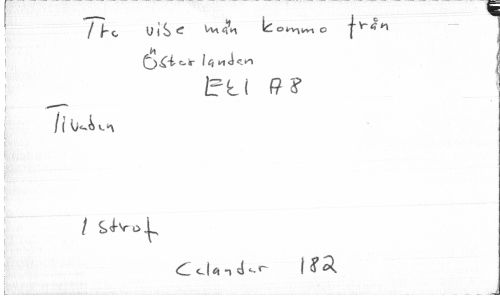 Tre vise män kommo från
Österlanden
EEI A8
Tivaden
1 strof
Celander 182